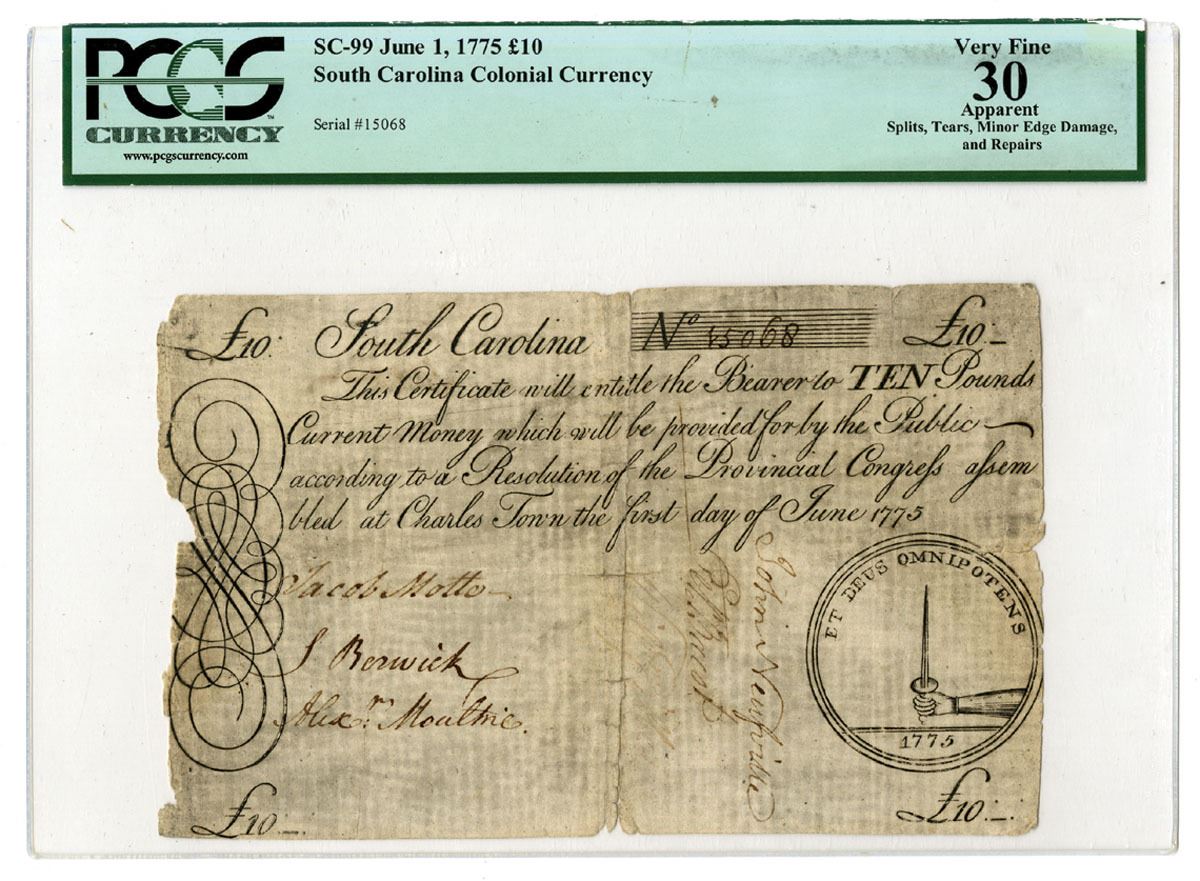 PCGS
CURRENCY
™
www.pcgscurrency.com
SC-99 June 1, 1775 £10
South Carolina Colonial Currency
Serial #15068
Very Fine
30
Apparent
Splits, Tears, Minor Edge Damage,
and Repairs
£10: South Carolina No 15068 £10:_
This Certificate will entitle the Bearer to TEN Pounds
Current Money which will be provided for by the Public
according to a Resolution of the Provincial Congreſs aſsem
bled at Charles Town the first day of June 1775
Jacob Motte
J Berwick
Alexr. Moultrie.
John Neufville
ET DEUS OMNIPOTENS
1775
£10 £10